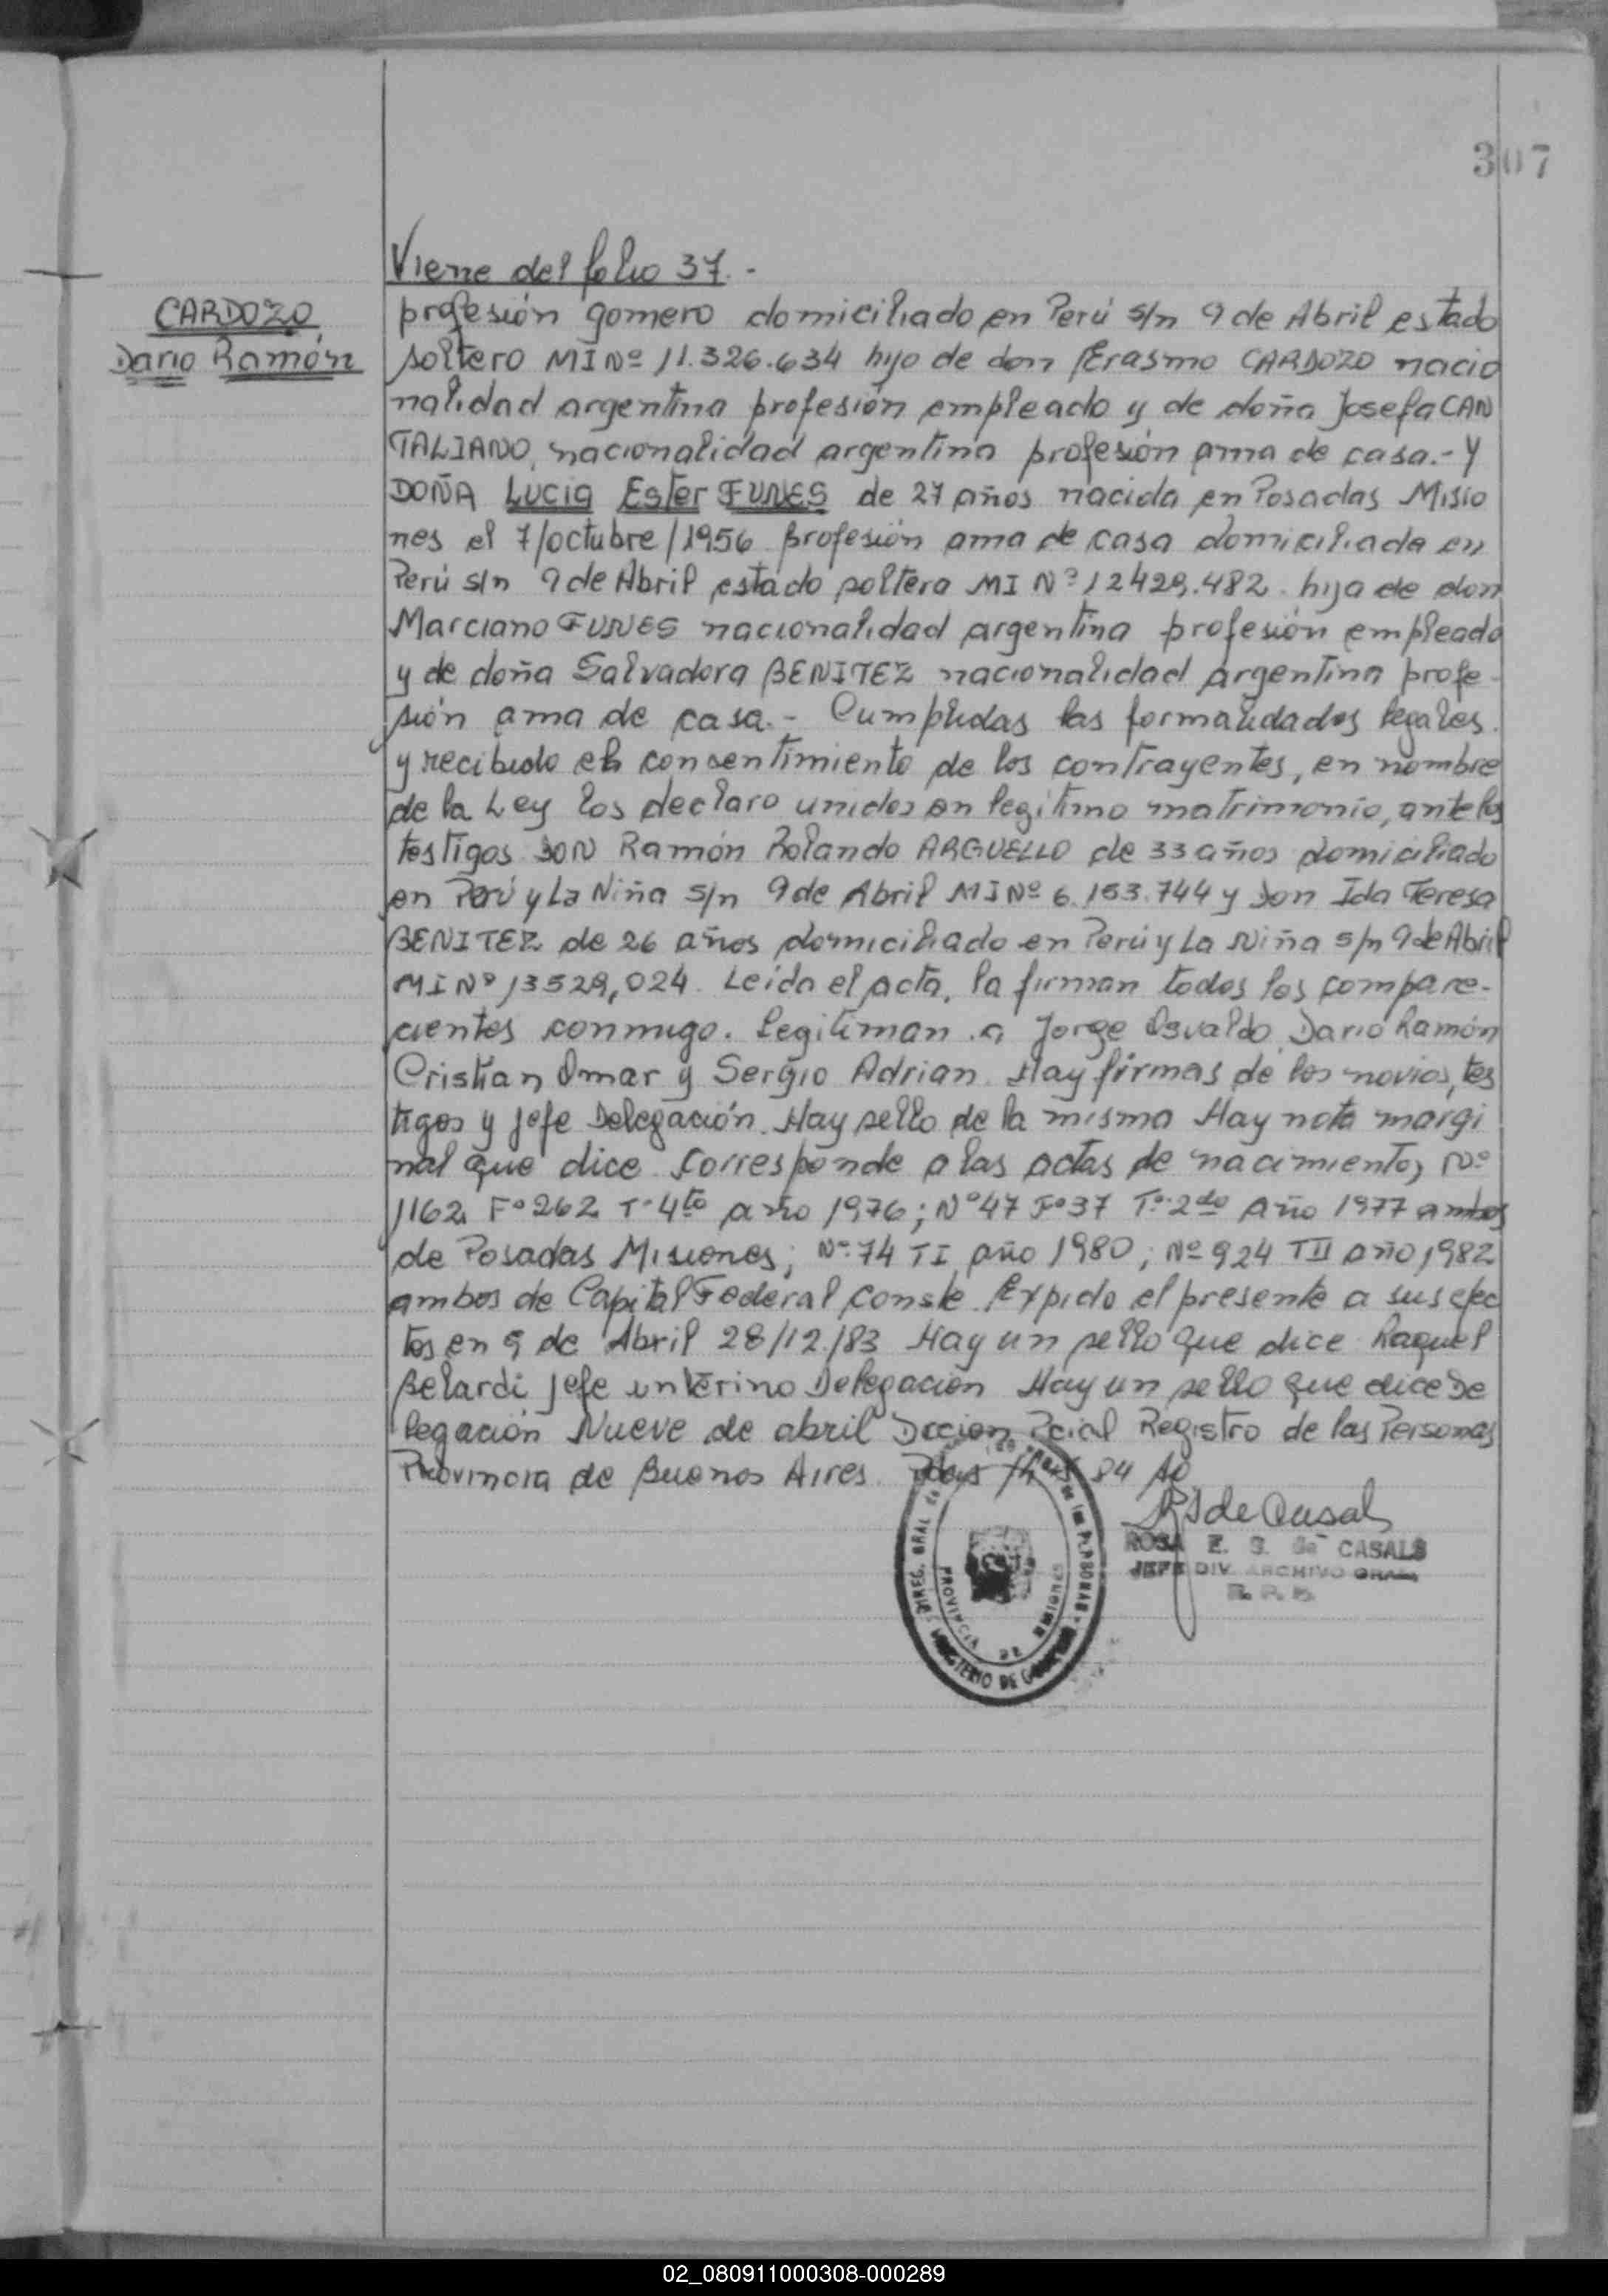 307
Viene del folio 37.-
CARDOZO
Dario Ramón
profesión gomero domiciliado en Perú s/n 9 de Abril estado
soltero MI Nº 11.326.634 hijo de don Erasmo CARDOZO nacio
nalidad argentina profesión empleado y de doña Josefa CAN
TALIANO, nacionalidad argentina profesión ama de casa.- Y
DOÑA Lucia Ester FUNES de 27 años nacida en Posadas Misio
nes el 7/octubre/1956 profesión ama de casa domiciliada en
Perú s/n 9 de Abril estado soltera MI Nº 12429.482 hija de don
Marciano FUNES nacionalidad argentina profesión empleado
y de doña Salvadora BENITEZ nacionalidad argentina profe-
sión ama de casa.- Cumplidas las formalidades legales
y recibido el consentimiento de los contrayentes, en nombre
de la Ley los declaro unidos en legítimo matrimonio, ante los
testigos DON Ramón Rolando ARGUELLO de 33 años domiciliado
en Perú y La Niña s/n 9 de Abril MI Nº 6.153.744 y Don Ida Teresa
BENITEZ de 26 años domiciliado en Perú y La Niña s/n 9 de Abril
MI Nº 13529,024. Leída el acta, la firman todos los compare-
cientes conmigo. Legitiman a Jorge Osvaldo, Dario Ramón
Cristian Omar y Sergio Adrian. Hay firmas de los novios, tes
tigos y jefe Delegación. Hay sello de la misma Hay nota margi
nal que dice corresponde a las actas de nacimiento, Nº
1162 Fº 262 Tº 4to año 1976; Nº 47 Fº 37 Tº 2do Año 1977 ambos
de Posadas Misiones; Nº 74 TI año 1980; Nº 924 TII año 1982
ambos de Capital Federal conste. Expido el presente a sus efec
tos en 9 de Abril 28/12/83 Hay un sello que dice Raquel
Belardi jefe interino Delegación Hay un sello que dice De
legación Nueve de abril Dccion Pcial Registro de las Personas
Provincia de Buenos Aires. 84
DIREC. GRAL de las PERSONAS
PROVINCIA DE MISIONES
MINISTERIO DE GOBIERNO
R S de Casals
ROSA E. S. de CASALS
JEFE DIV. ARCHIVO GRAL.
R. P. P.
02_080911000308-000289